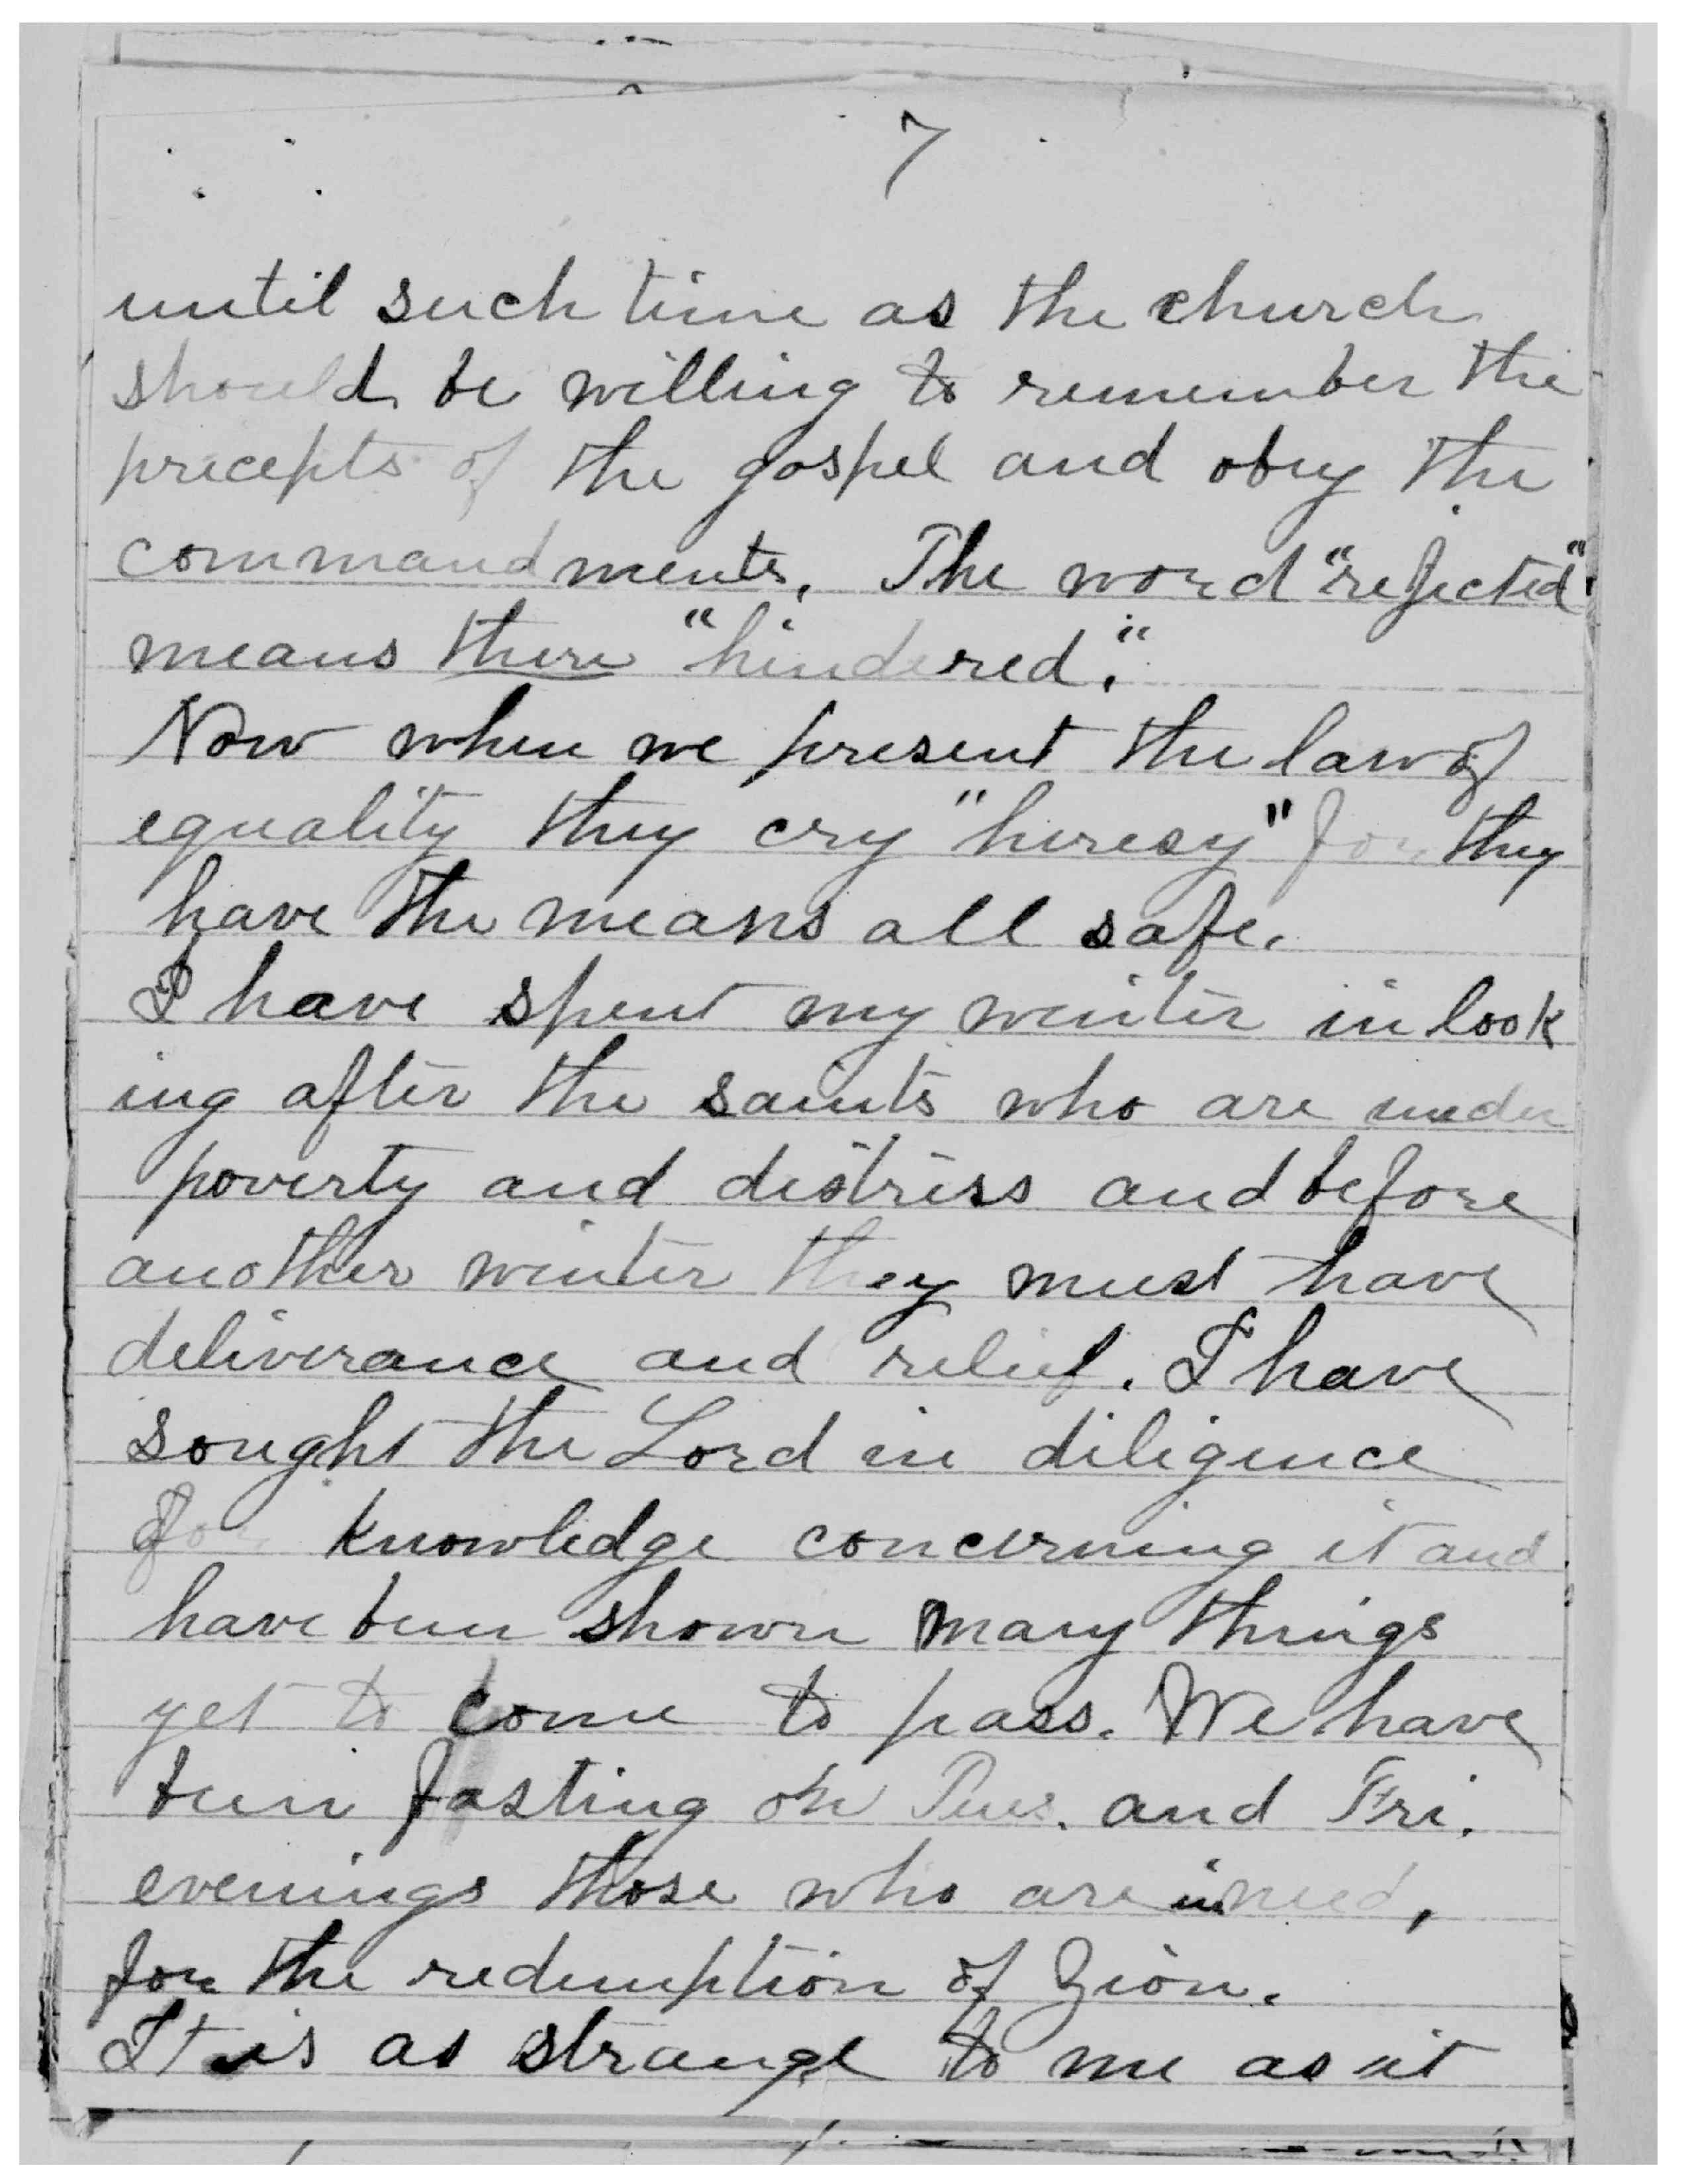 7
until such time as the church
should be willing to remember the
precepts of the gospel and obey the
commandments. The word "rejected"
means there "hindered."
Now when we present the law of
equality they cry "heresy" for they
have the means all safe.
I have spent my winter in look
ing after the saints who are under
poverty and distress and before
another winter they must have
deliverance and relief. I have
sought the Lord in diligence
for knowledge concerning it and
have been shown many things
yet to come to pass. We have
been fasting on Tues. and Fri.
evenings those who are in need,
for the redemption of Zion.
It is as strange to me as it